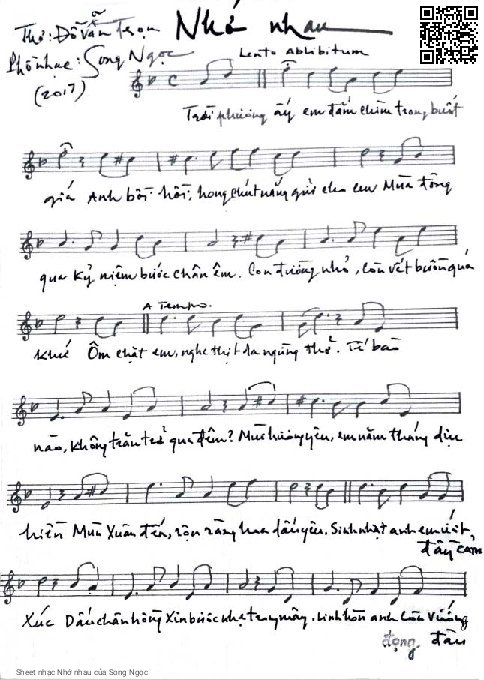 Thơ: Đỗ Văn Trọn
Nhớ nhau
Phổ nhạc: Song Ngọc
(2017)
Lento abbibitum
Trời phương ấy em đắm chìm trong buốt
giá Anh bồi hồi, hong chút nắng gửi cho em Mùa đông
qua kỷ niệm bước chân êm. Con đường nhỏ, còn vết buồn quá
khứ Ôm chặt em, nghe thịt da ngừng thở. Tế bào
A Tempo.
nào, không trăn trở qua đêm? Mùi hương yêu, em năm tháng dịu
hiền Mùa Xuân đến, rộn ràng hoa dấu yêu. Sinh nhật anh em viết,
đầy cảm
Xúc Dấu chân hồng Xin bước nhẹ trong mây. Linh hồn anh còn Vướng
đọng đâu
Sheet nhạc Nhớ nhau của Song Ngọc